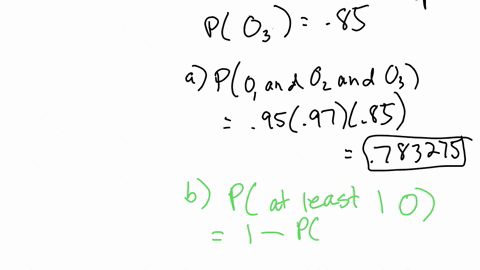 P(O₃) = .85
a) P(O₁ and O₂ and O₃)
= .95(.97)(.85)
= .783275
b) P(at least 1 O)
= 1 - P(